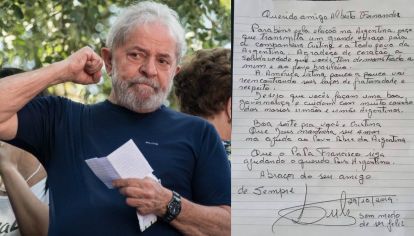 Querido amigo Alberto Fernandez
Parabéns pela eleição na Argentina, peço
que transmita um grande abraço para
a companheira Cristina e a todo povo da
Argentina. Agradeço de coração pela
solidariedade que vocês têm demonstrado a
mim e ao povo brasileiro.
A América Latina pouco a pouco vai
reencontrando seus laços de fraternidade e
respeito.
Desejo que vocês façam uma boa
governança e cuidem com muito carinho
dos nossos irmãos e irmãs Argentinos.
Boa sorte pra você e Cristina
Que Deus
na ajuda ao povo pobre da Argentina
Que o Papa Francisco siga
ajudando o querido povo Argentino.
Abraço do seu amigo
de sempre
Lula
29/10/2019
Sem medo
de ser feliz